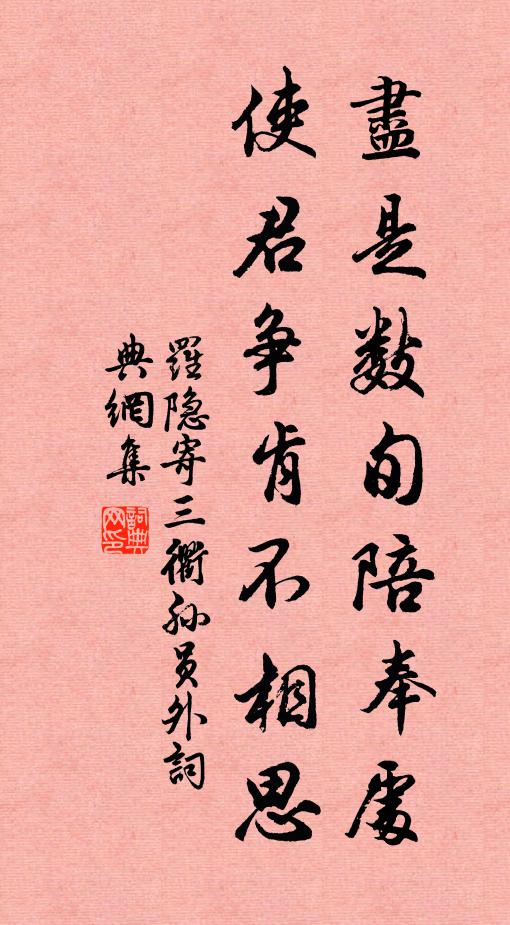 盡是數旬陪奉處
使君争肯不相思
羅隐寄三衢孙员外詞
典網集
詞典
网印